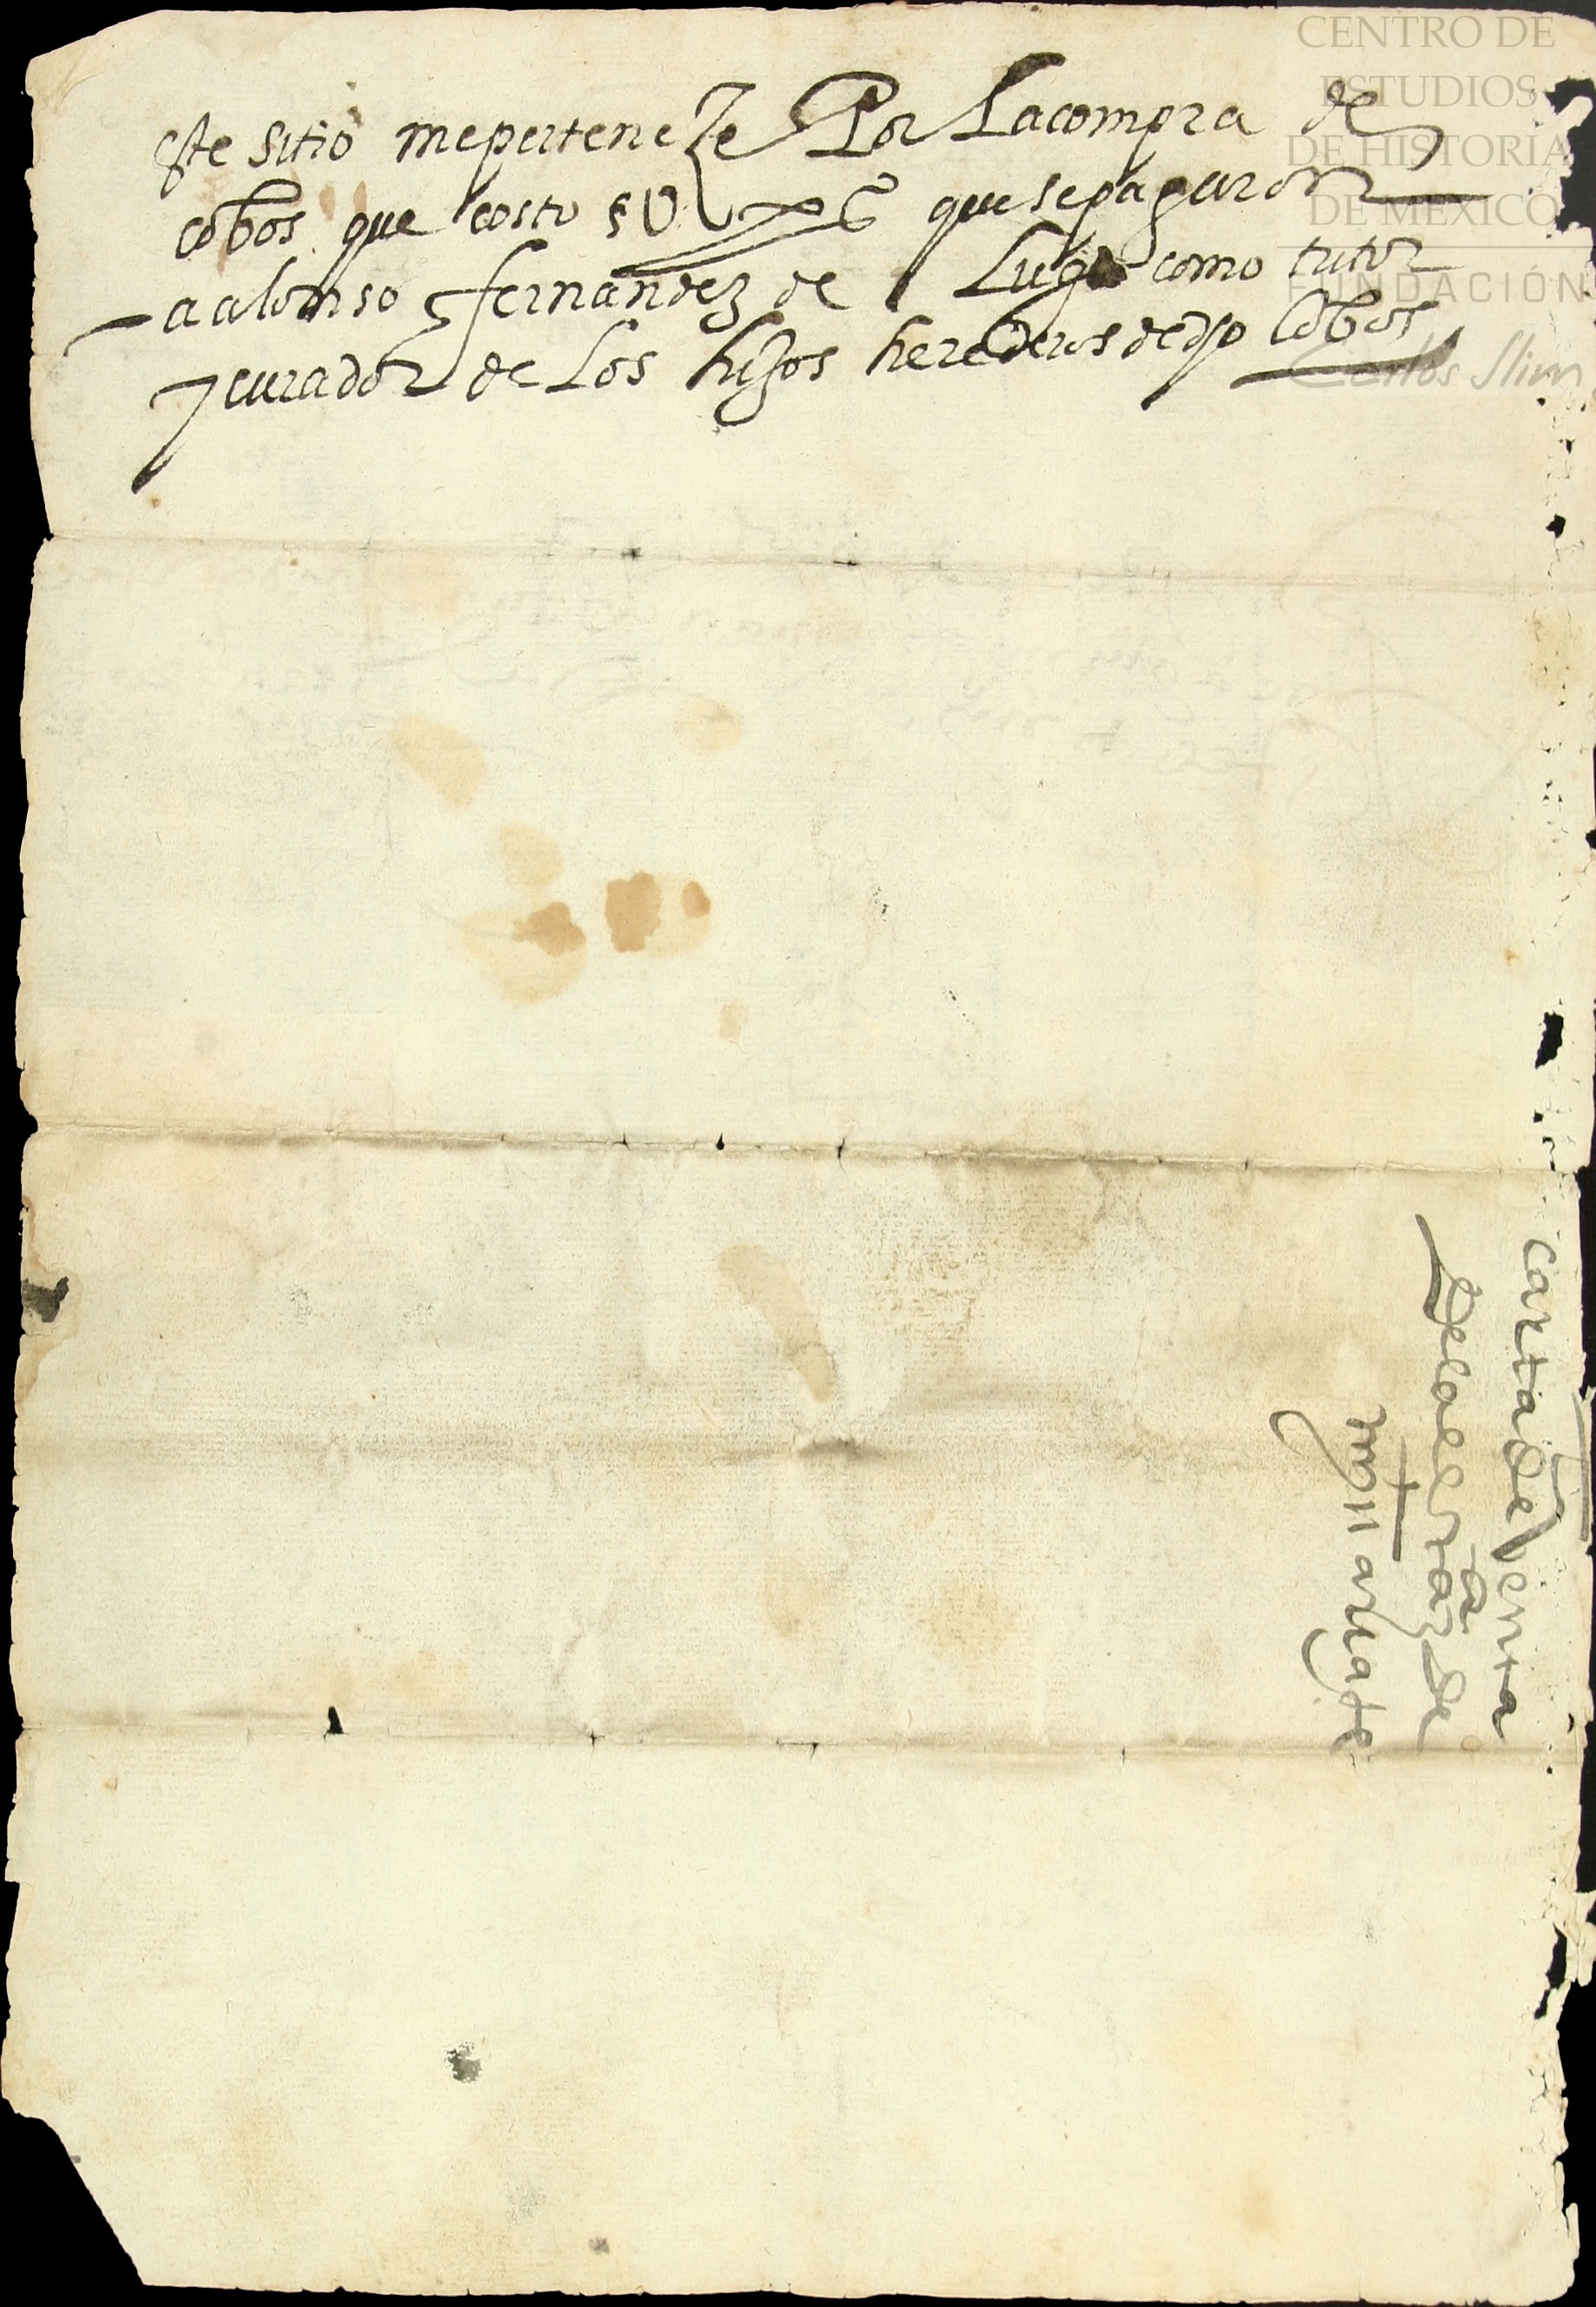 este sitio me perteneze Por La compra de
cobos que costo que se pagaron
a alonso fernandez de Lugo como tutor
y curador de Los hijos herederos de dho cobos
carta de venta
de la
de
arriate
CENTRO DE
ESTUDIOS
DE HISTORIA
DE MÉXICO
FUNDACIÓN
Carlos Slim